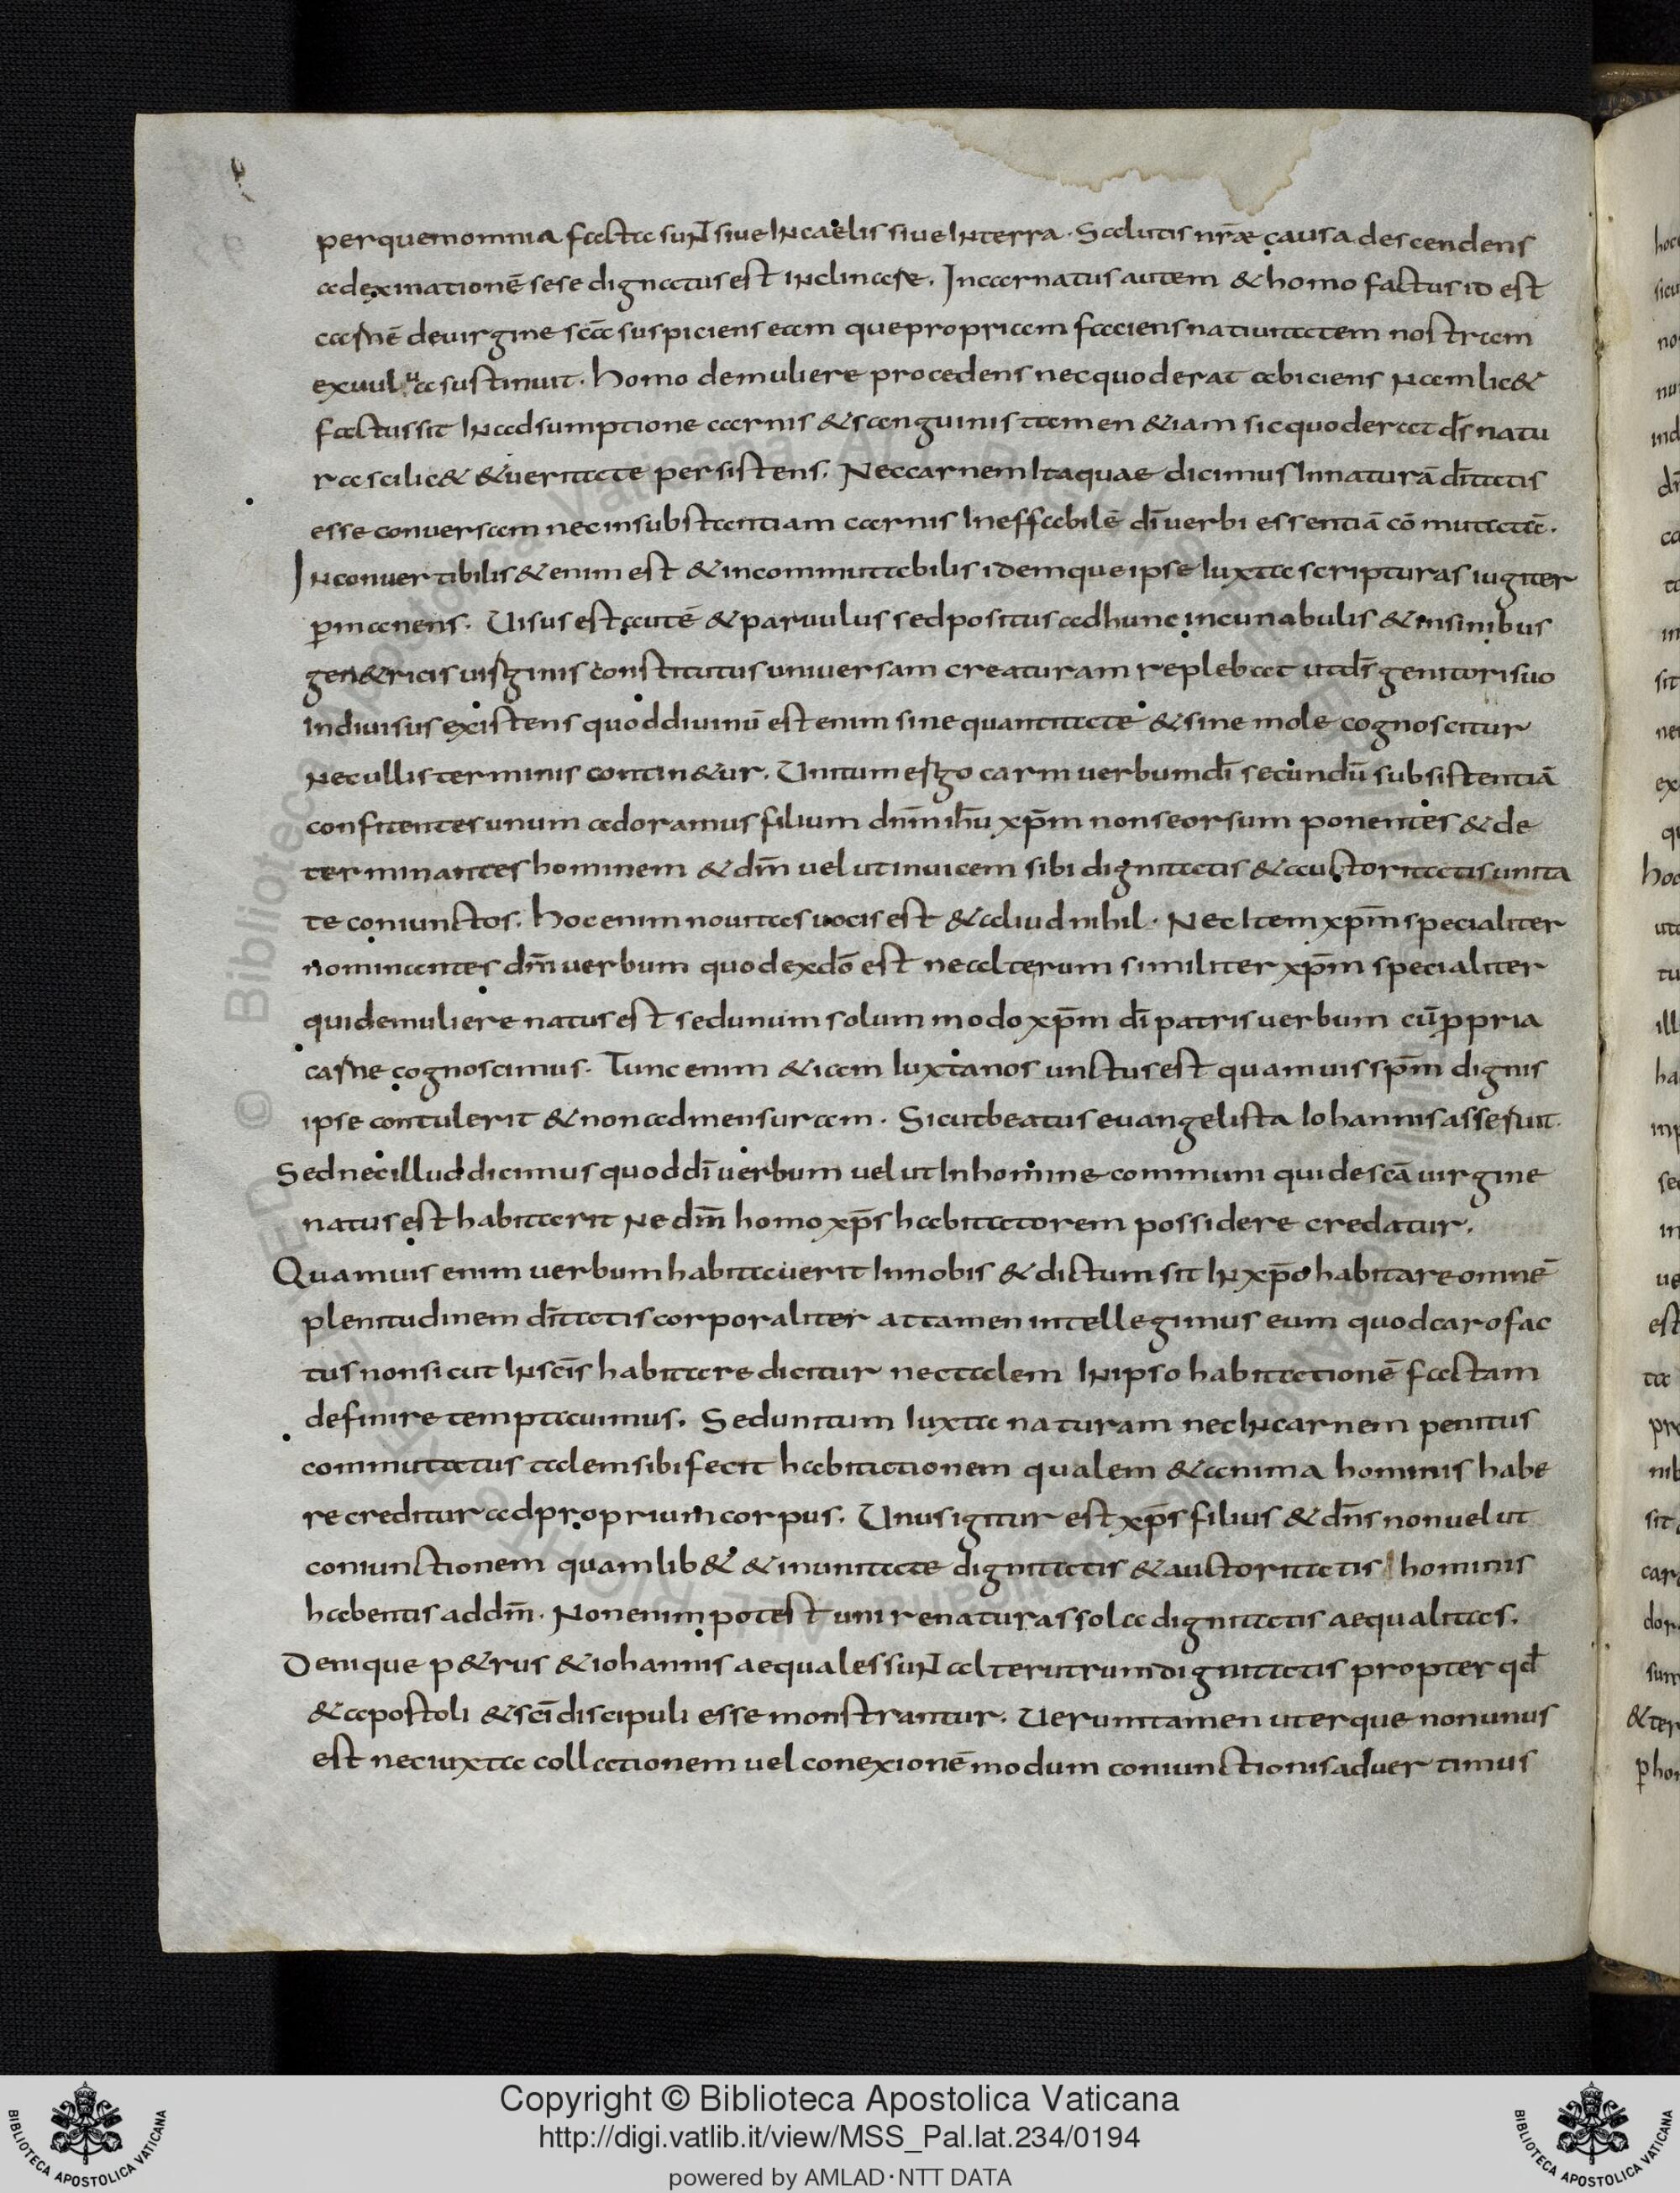 per quem omnia facta sunt siue in caelis siue in terra. Salutis nr̄ae causa descendens
ad exinationē sese dignatus est inclinare. Incarnatus autem & homo factus id est
carnē de uirgine sc̄a suspiciens eamque propriam faciens natiuitatem nostram
ex uulua sustinuit. homo de muliere procedens nec quod erat abiciens nam lic&
factus sit in adsumptione carnis & sanguinis tamen &iam sic quod erat d̄s natu
ra scilic& & ueritate persistens. Nec carnem itaquae dicimus in naturā dītatis
esse conuersam nec in substantiam carnis ineffabilē dī uerbi essentiā cōmutatā.
Inconuertibilis &enim est & incommutabilis idemque ipse iuxta scripturas iugiter
p̄manens. Uisus est autē & paruulus sed positus adhunc in cunabulis & in sinibus
gen&ricis uirginis constitutus uniuersam creaturam replebat ut d̄s genitori suo
indiuisus existens quod diuinū est enim sine quantitate & sine mole cognoscitur
nec ullis terminis contin&ur. Unitum ergo carni uerbum dī secundū subsistentiā
confitentes unum adoramus filium dn̄m ih̄u xp̄m non seorsum ponentes & de
terminantes hominem & dm̄ uelut inuicem sibi dignitatis & auctoritatis unita
te coniunctos. hoc enim nouitas uocis est & aliud nihil. Nec item xpm̄ specialiter
nominantes dm̄ uerbum quod ex dō est nec alterum similiter xp̄m specialiter
qui de muliere natus est sed unum solum modo xp̄m dī patris uerbum cū p̄pria
carne cognoscimus. Tunc enim &iam iuxta nos unctus est quamuis sp̄m dignis
ipse contulerit & non ad mensuram. Sicut beatus euangelista iohannis asseruit.
Sed nec illud dicimus quod dī uerbum uelut in homine communi qui de sc̄a uirgine
natus est habitarit ne dm̄ homo xp̄s habitatorem possidere credatur.
Quamuis enim uerbum habitauerit in nobis & dictum sit in xp̄o habitare omnē
plenitudinem dītatis corporaliter attamen intellegimus eum quod caro fac
tus non sicut in sc̄is habitare dicitur nec talem in ipso habitationē factam
definire temptauimus. Sed unitum iuxta naturam nec in carnem penitus
commutatus talem sibi fecit habitationem qualem & anima hominis habe
re creditur ad proprium corpus. Unus igitur est xp̄s filius & dn̄s non uelut
coniunctionem quamlib& & in unitate dignitatis & auctoritatis hominis
habentis ad dm̄. Non enim potest unire naturas sola dignitatis aequalitas.
Denique p&rus & iohannis aequales sunt alterutrum dignitatis propter qd̄
& apostoli & sc̄i discipuli esse monstrantur. Uerumtamen uterque non unus
est nec iuxta collationem uel conexionē modum coniunctionis aduertimus
Copyright © Biblioteca Apostolica Vaticana
http://digi.vatlib.it/view/MSS_Pal.lat.234/0194
powered by AMLAD·NTT DATA
BIBLIOTECA APOSTOLICA VATICANA
BIBLIOTECA APOSTOLICA VATICANA